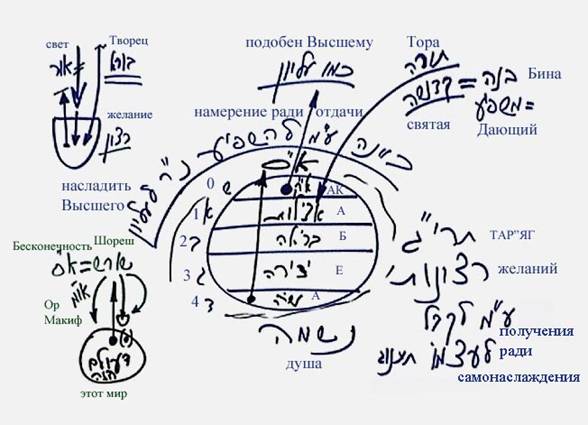 свет Творец
אור בורא
желание
רצון
насладить
Высшего
подобен Высшему
כמו עליון
намерение ради отдачи
כוונה ע"מ להשפיע נ"ר לעליון
Тора
תורה
קדושה = בנה Бина
משפיע =
святая Дающий
א"ס
0 ש א"ק АК
1 א אצילות А
2 ב בריאה Б
3 ג יצירה Е
4 ד עשיה А
נשמה
душа
Бесконечность Шореш
שורש = א"ס
או"מ
Ор
Макиф
העולם
הזה
этот мир
תרי"ג ТАР"ЯГ
רצונות желаний
ע"מ לקבל
получения
לעצמו תענוג ради
самонаслаждения